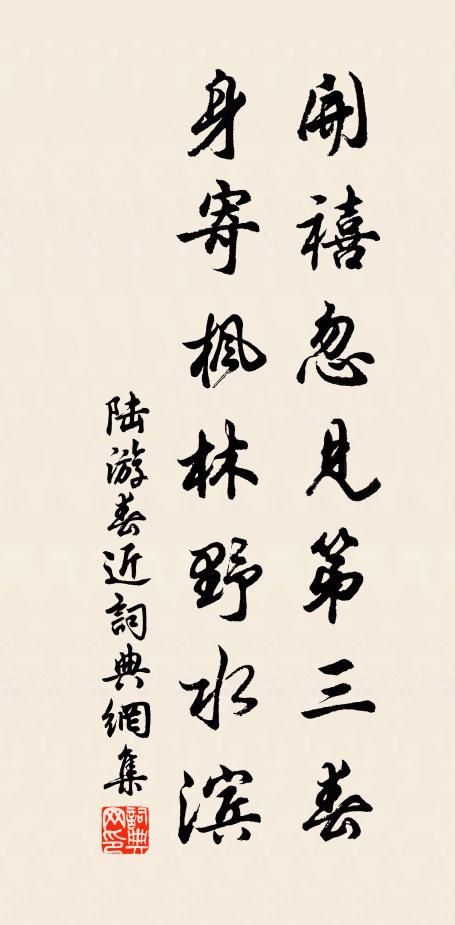 開禧忽見第三春
身寄楓林野水滨
陆游春近詞典網集
詞典网印